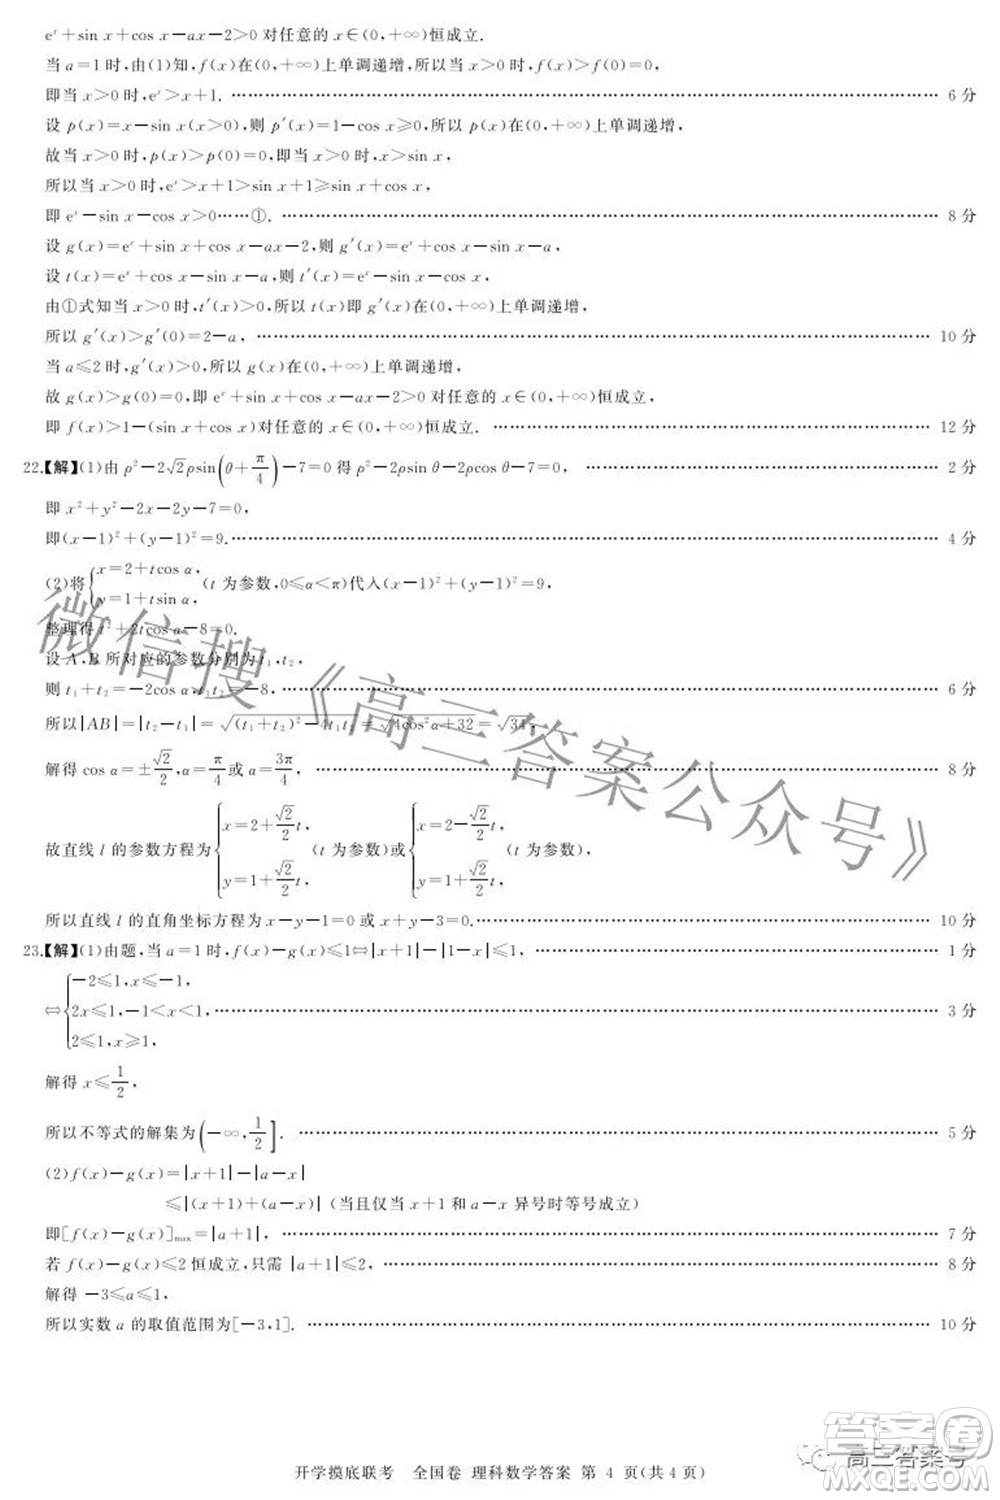 eˣ+sin x+cos x-ax-2>0 对任意的 x∈(0,+∞)恒成立.
当 a=1 时,由(1)知,f(x)在(0,+∞)上单调递增,所以当 x>0 时,f(x)>f(0)=0,
即当 x>0 时,eˣ>x+1. …… 6 分
设 p(x)=x-sin x(x>0),则 p′(x)=1-cos x≥0,所以 p(x)在(0,+∞)上单调递增,
故当 x>0 时,p(x)>p(0)=0,即当 x>0 时,x>sin x,
所以当 x>0 时,eˣ>x+1>sin x+1≥sin x+cos x,
即 eˣ-sin x-cos x>0……①. …… 8 分
设 g(x)=eˣ+sin x+cos x-ax-2,则 g′(x)=eˣ+cos x-sin x-a,
设 t(x)=eˣ+cos x-sin x-a,则 t′(x)=eˣ-sin x-cos x,
由①式知当 x>0 时,t′(x)>0,所以 t(x)即 g′(x)在(0,+∞)上单调递增,
所以 g′(x)>g′(0)=2-a, …… 10 分
当 a≤2 时,g′(x)>0,即 g(x)在(0,+∞)上单调递增,
故 g(x)>g(0)=0,即 eˣ+sin x+cos x-ax-2>0 对任意的 x∈(0,+∞)恒成立,
即 f(x)>1-(sin x+cos x)对任意的 x∈(0,+∞)恒成立. …… 12 分
22.【解】(1)由 ρ²-2√2ρsin(θ+π/4)-7=0 得 ρ²-2ρsin θ-2ρcos θ-7=0, …… 2 分
即 x²+y²-2x-2y-7=0,
即(x-1)²+(y-1)²=9. …… 4 分
(2)将{x=2+tcos α, y=1+tsin α,(t 为参数,0≤α<π)代入(x-1)²+(y-1)²=9,
整理得 t²+2tcos α-8=0.
设 A,B 所对应的参数分别为 t₁,t₂,
则 t₁+t₂=-2cos α,t₁t₂=-8, …… 6 分
所以|AB|=|t₂-t₁|=√((t₁+t₂)²-4t₁t₂)=√(4cos²α+32)=√34,
解得 cos α=±√2/2,α=π/4 或 α=3π/4, …… 8 分
故直线 l 的参数方程为{x=2+√2/2 t, y=1+√2/2 t,(t 为参数)或{x=2-√2/2 t, y=1+√2/2 t,(t 为参数),
所以直线 l 的直角坐标方程为 x-y-1=0 或 x+y-3=0. …… 10 分
23.【解】(1)由题,当 a=1 时,f(x)-g(x)≤1⇔|x+1|-|1-x|≤1, …… 1 分
⇔{-2≤1,x≤-1, 2x≤1,-1<x<1, 2≤1,x≥1, …… 3 分
解得 x≤1/2,
所以不等式的解集为(-∞,1/2]. …… 5 分
(2)f(x)-g(x)=|x+1|-|a-x|
≤|(x+1)+(a-x)|(当且仅当 x+1 和 a-x 异号时等号成立)
即[f(x)-g(x)]max=|a+1|, …… 7 分
若 f(x)-g(x)≤2 恒成立,只需 |a+1|≤2, …… 8 分
解得 -3≤a≤1,
所以实数 a 的取值范围为[-3,1]. …… 10 分
微信搜《高三答案公众号》
答案圈
高三答案号
MXQE.COM
开学摸底联考 全国卷 理科数学答案 第 4 页(共 4 页)